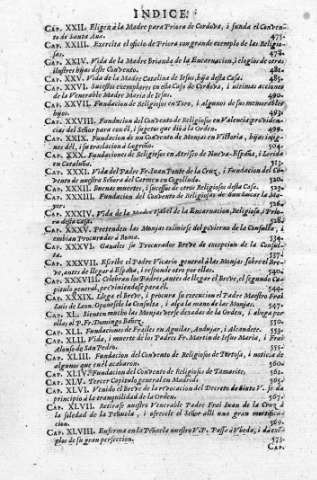 INDICE.
CAP. XXII. Eligen à la Madre para Priora de Cordova, i funda el Conven-
to de Santa Ana. 473.
CAP. XXIII. Exercita el oficio de Priora con grande exemplo de las Religio-
sas. 477.
CAP. XXIV. Vida de la Madre Brianda de la Encarnacion, i elogios de otras
ilustres hijas deste Convento. 481.
CAP. XXV. Vida de la Madre Catalina de Jesus, hija desta Casa. 485.
CAP. XXVI. Sucessos exemplares en esta Casa de Cordova, i ultimas acciones
de la Venerable Madre Maria de Jesus. 490.
CAP. XXVII. Fundacion de Religiosas en Toro, i algunos de sus memorables
hijos. 493.
CAP. XXVIII. Fundacion del Convento de Religiosas en Valencia, providen-
cias del Señor para con èl, i sugetos que diò à la Orden. 499.
CAP. XXIX. Fundacion de un Convento de Monjas en Vitoria, hijas insig-
nes dèl, i su translacion à Logroño. 504.
CAP. XXX. Fundaciones de Religiosos en Atrisco de Nueva-España, i Lerida
en Cataluña. 513.
CAP. XXXI. Vida del Padre Fr. Juan de la Cruz, i Fundacion del Con-
vento de nuestra Señora del Carmen en Cogolludo. 520.
CAP. XXXII. Buenas muertes, i sucessos de otros Religiosos desta Casa. 525.
CAP. XXXIII. Fundacion del Convento de Religiosas de Sanlucar la Ma-
yor. 528.
CAP. XXXIV. Vida de la Madre Isabel de la Encarnacion, Religiosa, i Prio-
ra desta Casa.
CAP. XXXV. Pretenden las Monjas eximirse del govierno de la Consulta, i
embian Procurador à Roma. 534.
CAP. XXXVI. Ganales su Procurador Breve de excepcion de la Consul-
ta. 537.
CAP. XXXVII. Escrive el Padre Vicario general à las Monjas sobre el Bre-
ve, antes de llegar à España, i responde otro por ellas. 540.
CAP. XXXVIII. Celebran los Padres, antes de llegar el Breve, el segundo ca-
pitulo general, previniendose para èl. 544.
CAP. XXXIX. Llega el Breve, i procura su execucion el Padre Maestro Fray
Luis de Leon. Oponesele la Consulta, i alça la mano de las Monjas. 547.
CAP. XL. Sienten mucho las Monjas verse dexadas de la Orden, i aboga por
ellas el P. Fr. Domingo Bañez. 550.
CAP. XLI. Fundaciones de Frailes en Aguilas, Andujar, i Alcaudete. 553.
CAP. XLII. Vida, i muerte de los Padres Fr. Martin de Jesus Maria, i Frai
Alonso de San Pedro. 557.
CAP. XLIII. Fundacion del Convento de Religiosos de Tortosa, i noticia de
algunos que en èl acabaron. 560.
CAP. XLIV. Fundacion del Convento de Religiosos de Tamarite. 562.
CAP. XLV. Tercer Capitulo general en Madrid. 565.
CAP. XLVI. Venido el Breve de la revocacion del Decreto de Sixto V. se dà
principio à la tranquilidad de la Orden. 567.
CAP. XLVII. Retirase nuestro Venerable Padre Frai Juan de la Cruz à
la soledad de la Peñuela, i ofrecele el Señor alli una gran mortifica-
cion. 569.
CAP. XLVIII. Enferma en la Peñuela nuestro V.P. Passa à Ubeda, i dà exem-
plos de su gran perfeccion. 573.
CAP.